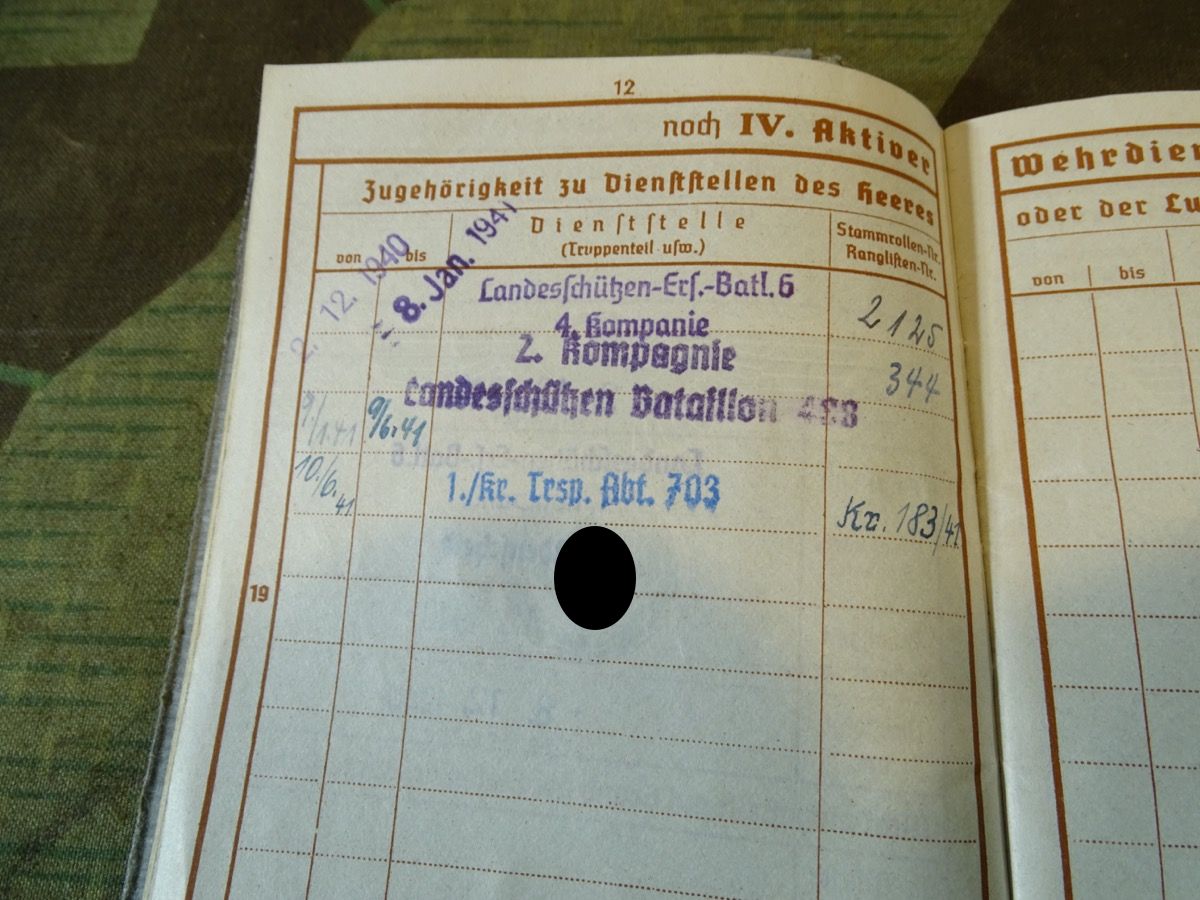 12
noch IV. Aktiver
Zugehörigkeit zu Dienststellen des Heeres
von
bis
Dienststelle
(Truppenteil usw.)
Stammrollen-Nr.
Ranglisten-Nr.
2. 12. 1940
8. Jan. 1941
Landesschützen-Ers.-Batl. 6
4. Kompanie
2125
2. Kompagnie
344
Landesschützen Bataillon
9/1.41
9/6.41
10./6.41
1./Kr. Trsp. Abt. 703
Kr. 183/41
19
Wehrdien
oder der Lu
von
bis